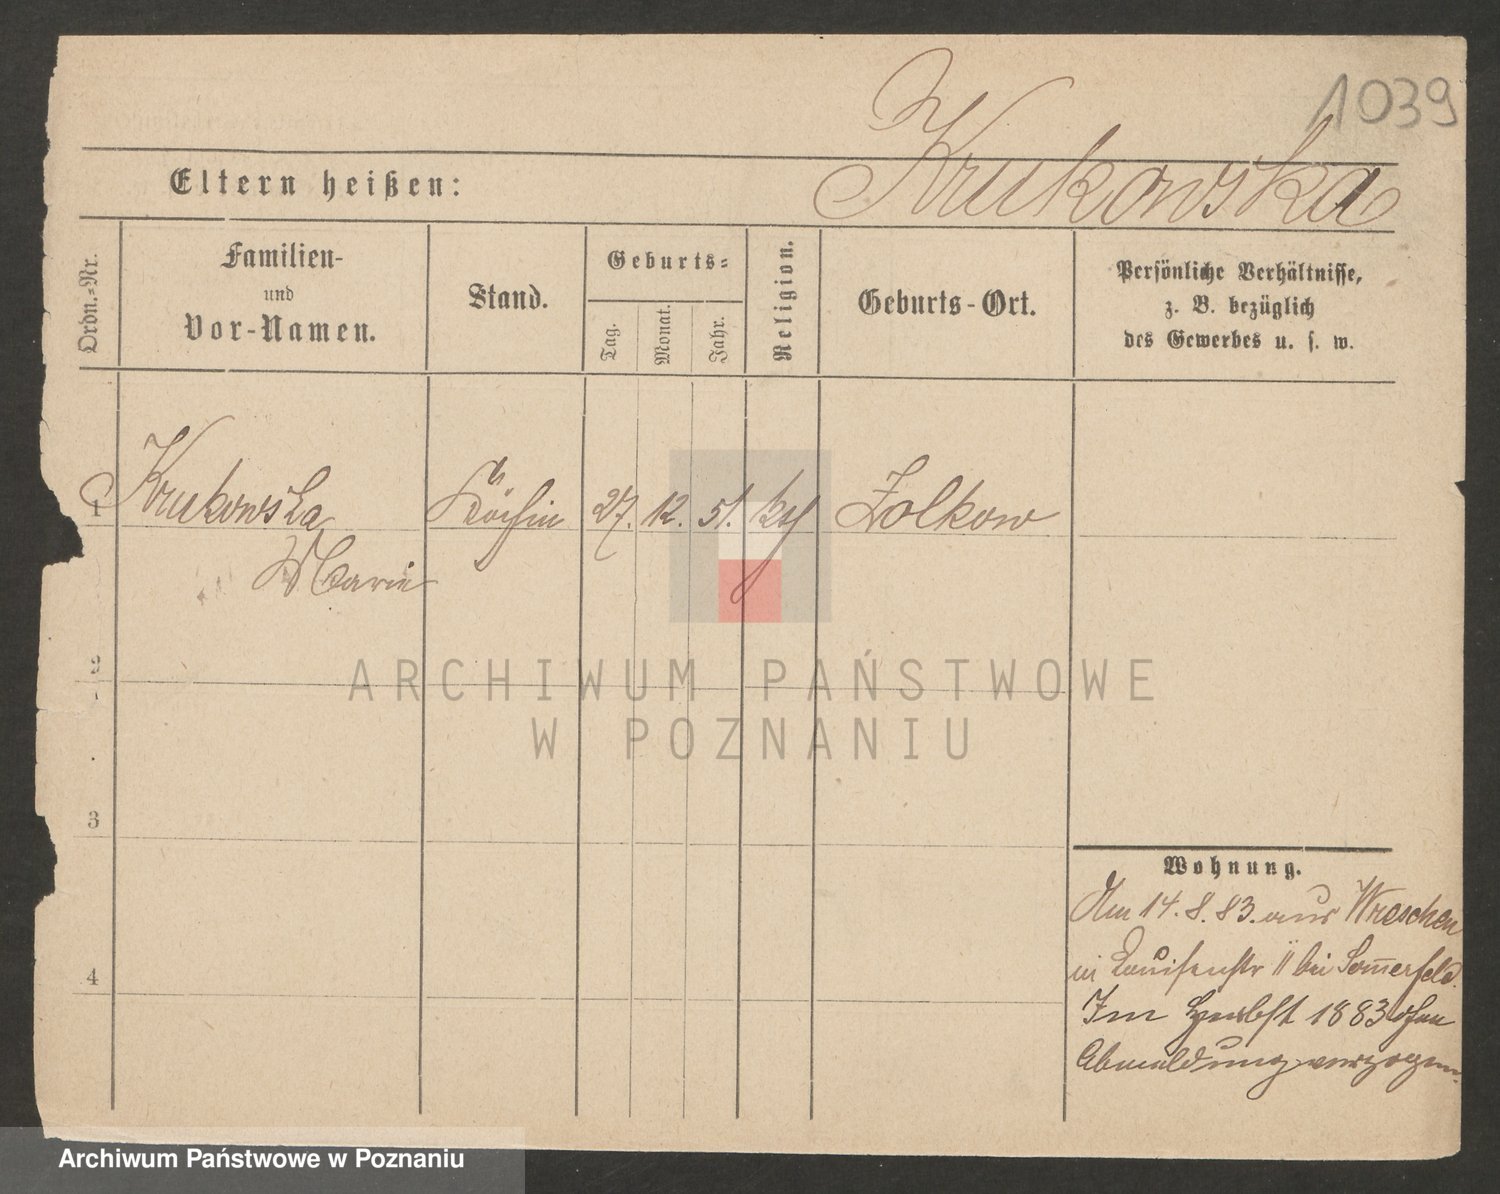 1039
Krukowska
Eltern heißen:
Ordn.-Nr.
Familien-
und
Vor-Namen.
Stand.
Geburts-
Tag.
Monat.
Jahr.
Religion.
Geburts-Ort.
Persönliche Verhältnisse,
z. B. bezüglich
des Gewerbes u. s. w.
1 Krukowska Köchin 27. 12. 51. Zolkow
Marie
2
3
4
Wohnung.
Am 14. 8. 83. aus Wreschen
in Louisenstr 11 bei Som̅erfeld.
Im Herbst 1883 ohne
Abmeldung verzogen.
ARCHIWUM PAŃSTWOWE
W POZNANIU
Archiwum Państwowe w Poznaniu